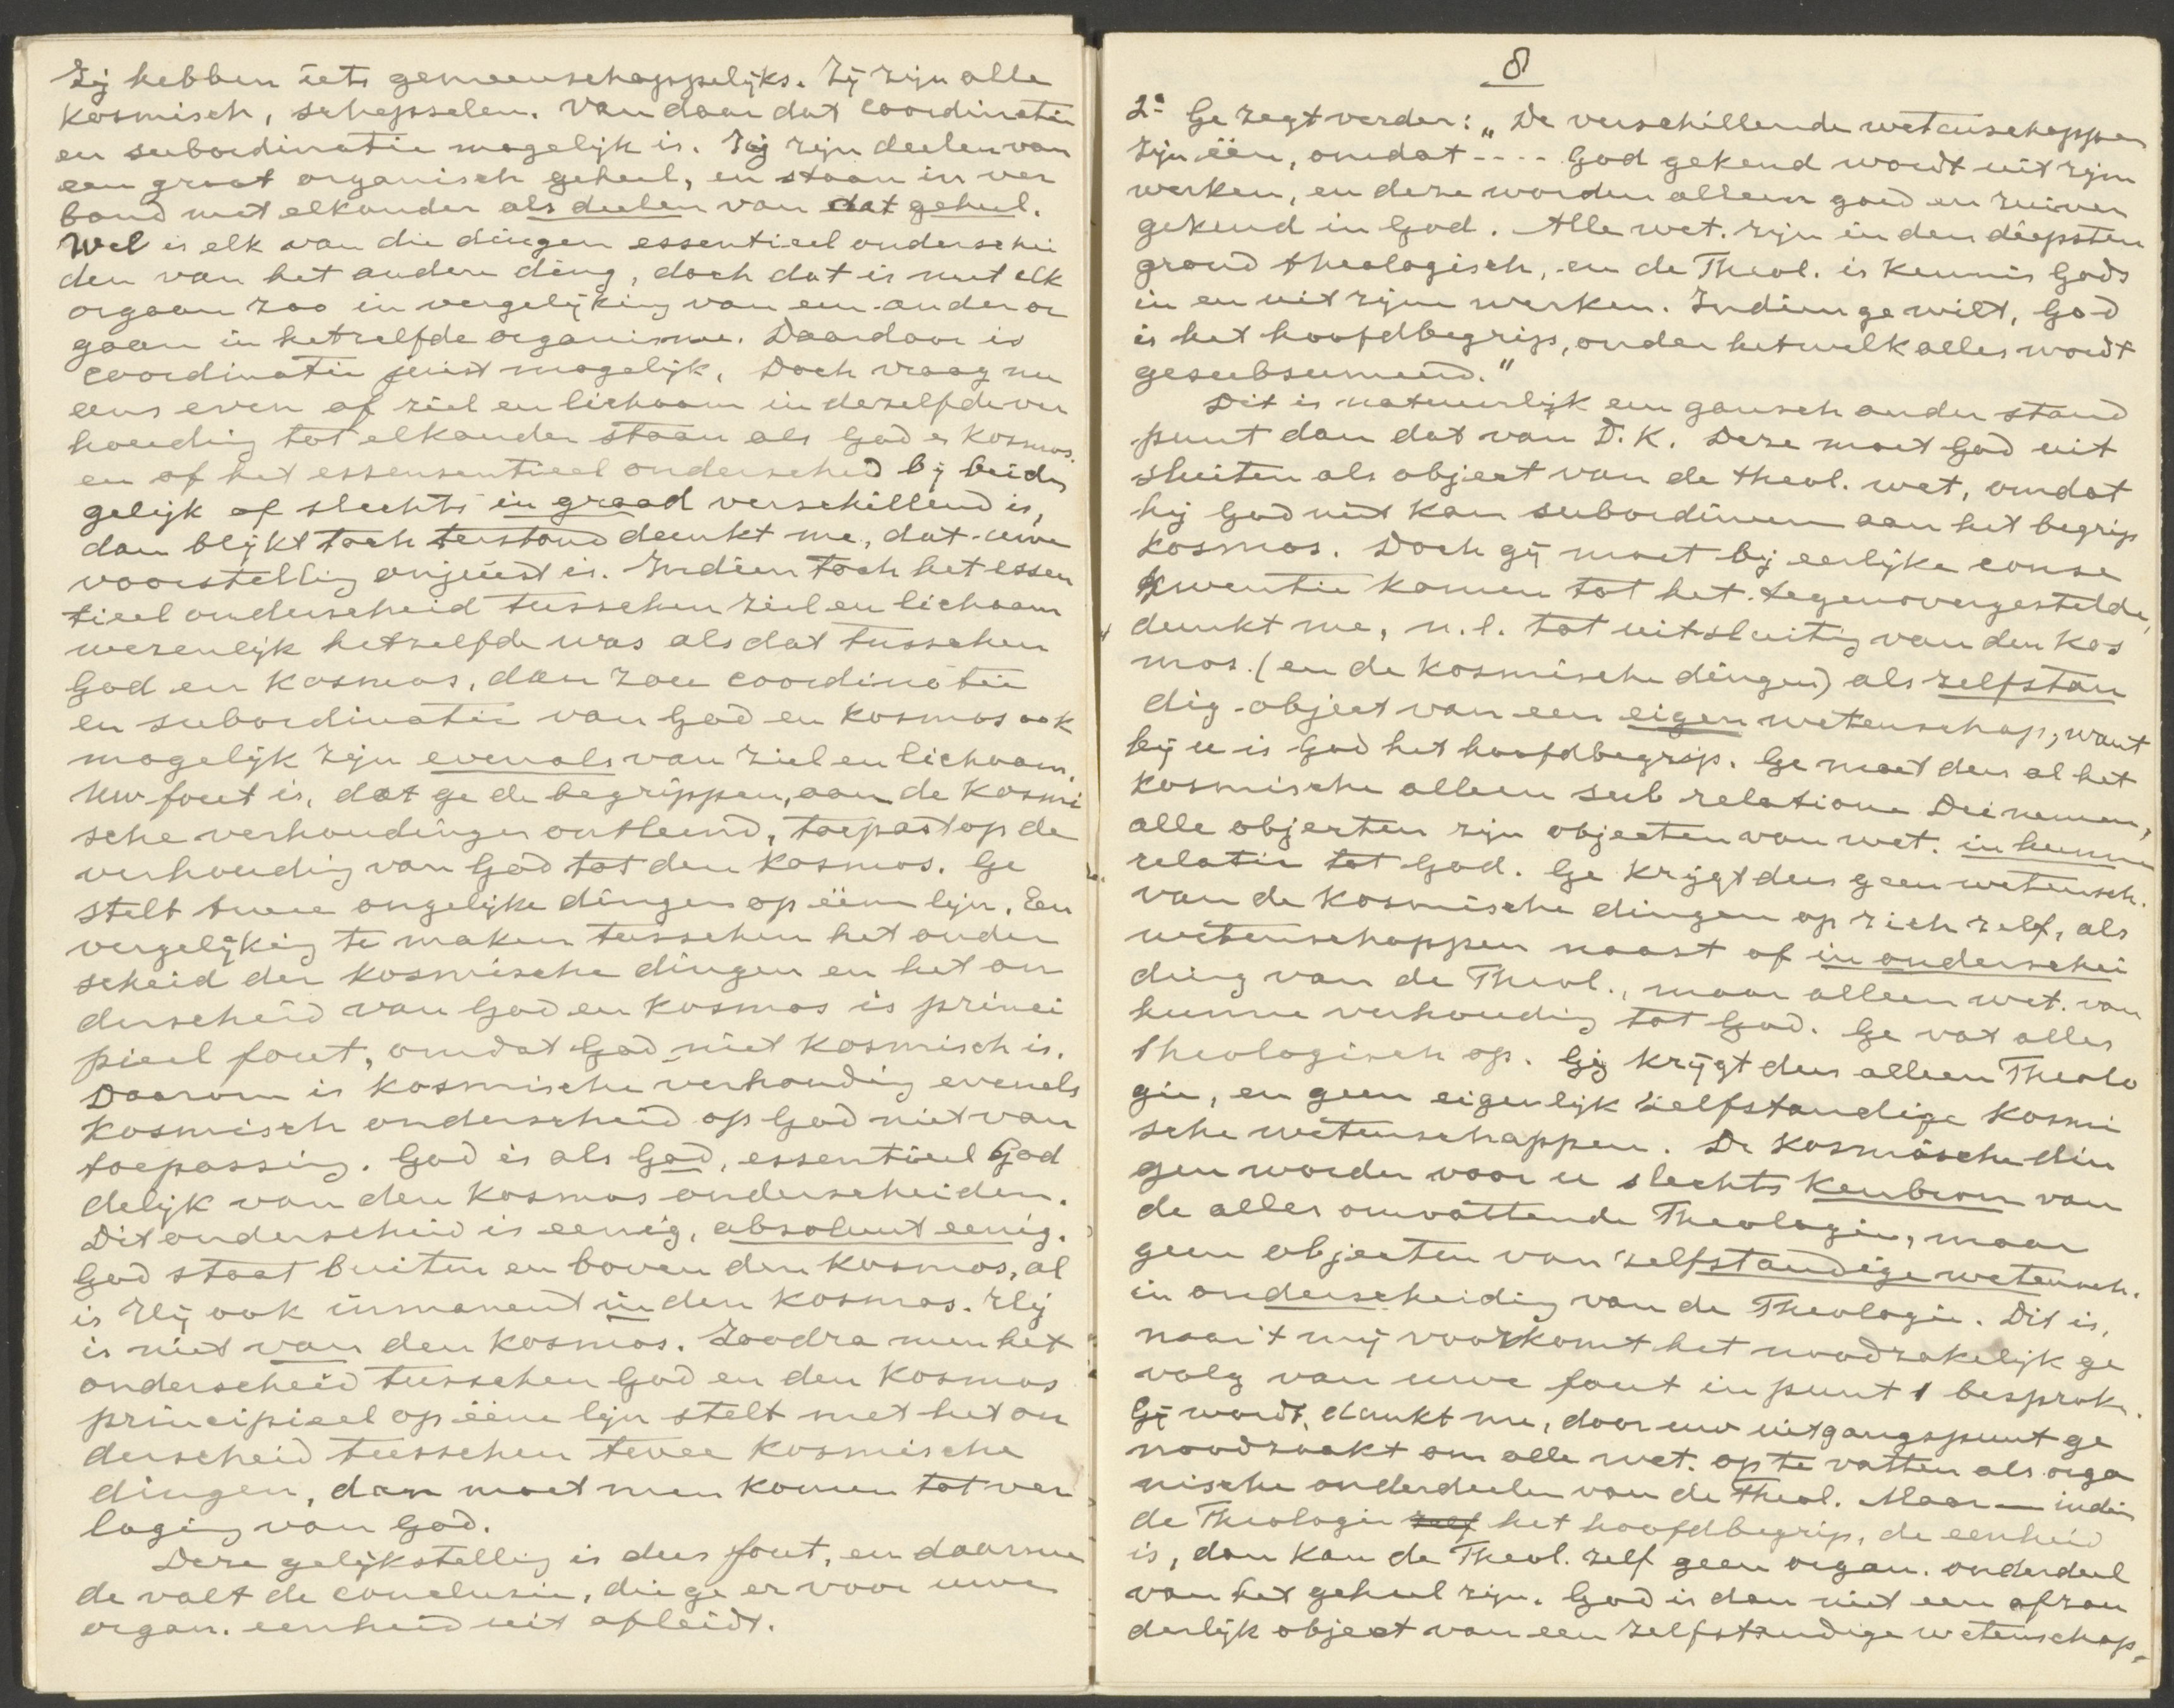 Zij hebben iets gemeenschappelijks. Zij zijn alle
kosmisch, schepselen. Van daar dat coordinatie
en subordinatie mogelijk is. Zij zijn deelen van
een groot organisch geheel, en staan in ver
band met elkander als deelen van dat geheel.
Wel is elk van die dingen essentieel onderschei
den van het andere ding, doch dat is met elk
orgaan zoo in vergelijking van een ander or
gaan in hetzelfde organisme. Daardoor is
coordinatie juist mogelijk. Doch vraag nu
eens even of ziel en lichaam in dezelfde ver
houding tot elkander staan als God en kosmos.
en of het essensentieel onderscheid bij beide
gelijk of slechts in graad verschillend is,
dan blijkt toch terstond dunkt me, dat uwe
voorstelling onjuist is. Indien toch het essen
tieel onderscheid tusschen ziel en lichaam
wezenlijk hetzelfde was als dat tusschen
God en kosmos, dan zou coordinatie
en subordinatie van God en kosmos ook
mogelijk zijn evenals van ziel en lichaam.
Uw fout is, dat ge de begrippen, aan de kosmi
sche verhoudingen ontleend, toepast op de
verhouding van God tot den kosmos. Ge
stelt twee ongelijke dingen op ééne lijn. Een
vergelijking te maken tusschen het onder
scheid der kosmische dingen en het on
derscheid van God en kosmos is princi
pieel fout, omdat God niet kosmisch is.
Daarom is kosmische verhouding evenals
kosmisch onderscheid op God niet van
toepassing. God is als God, essentieel God
delijk van den kosmos onderscheiden.
Dit onderscheid is eenig, absoluut eenig.
God staat buiten en boven den kosmos, al
is Hij ook immanent in den kosmos. Hij
is niet van den kosmos. Zoodra men het
onderscheid tusschen God en den kosmos
principieel op ééne lijn stelt met het on
derscheid tusschen twee kosmische
dingen, dan moet men komen tot ver
laging van God.
Deze gelijkstelling is dus fout, en daarme
de valt de conclusie, die ge er voor uwe
organ. eenheid uit afleidt.
8
2e Ge zegt verder: „De verschillende wetenschappen
zijn één, omdat ---- God gekend wordt uit zijn
werken, en deze worden alleen goed en zuiver
gekend in God. Alle wet. zijn in den diepsten
grond theologisch, en de Theol. is kennis Gods
in en uit zijne werken. Indien ge wilt, God
is het hoofdbegrip, onder hetwelk alles wordt
gesubsumeerd."
Dit is natuurlijk een gansch ander stand
punt dan dat van D. K. Deze moet God uit
sluiten als object van de theol. wet, omdat
hij God niet kan subordineeren aan het begrip
kosmos. Doch gij moet bij eerlijke conse
quentie komen tot het tegenovergestelde,
dunkt me, n.l. tot uitsluiting van den kos
mos. (en de kosmische dingen) als zelfstan
dig object van een eigen wetenschap, want
bij u is God het hoofdbegrip. Ge moet dus al het
kosmische alleen sub relatione Dei nemen,
alle objecten zijn objecten van wet. in hunne
relatie tot God. Ge krijgt dus geen wetensch.
van de kosmische dingen op zich zelf, als
wetenschappen naast of in onderschei
ding van de Theol., maar alleen wet. van
hunne verhouding tot God. Ge vat alles
Theologisch op. Gij krijgt dus alleen Theolo
gie, en geen eigenlijk zelfstandige kosmi
sche wetenschappen. De kosmische din
gen worden voor u slechts kenbron van
de alles omvattende Theologie, maar
geen objecten van zelfstandige wetensch.
in onderscheiding van de Theologie. Dit is,
naar 't mij voorkomt het noodzakelijk ge
volg van uwe fout in punt 1 besproken.
Gij wordt, dunkt me, door uw uitgangspunt ge
noodzaakt om alle wet. op te vatten als orga
nische onderdeelen van de Theol. Maar — indien
de Theologie zelf het hoofdbegrip, de eenheid
is, dan kan de Theol. zelf geen organ. onderdeel
van het geheel zijn. God is dan niet een afzon
derlijk object van een zelfstandige wetenschap,